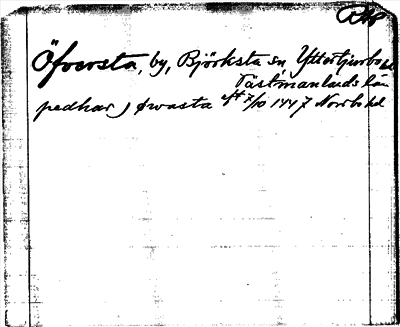 Öfversta, by, Björksta sn Yttertjurbo hd
Västmanlands län
pedhar j øwasta 7/10 1447